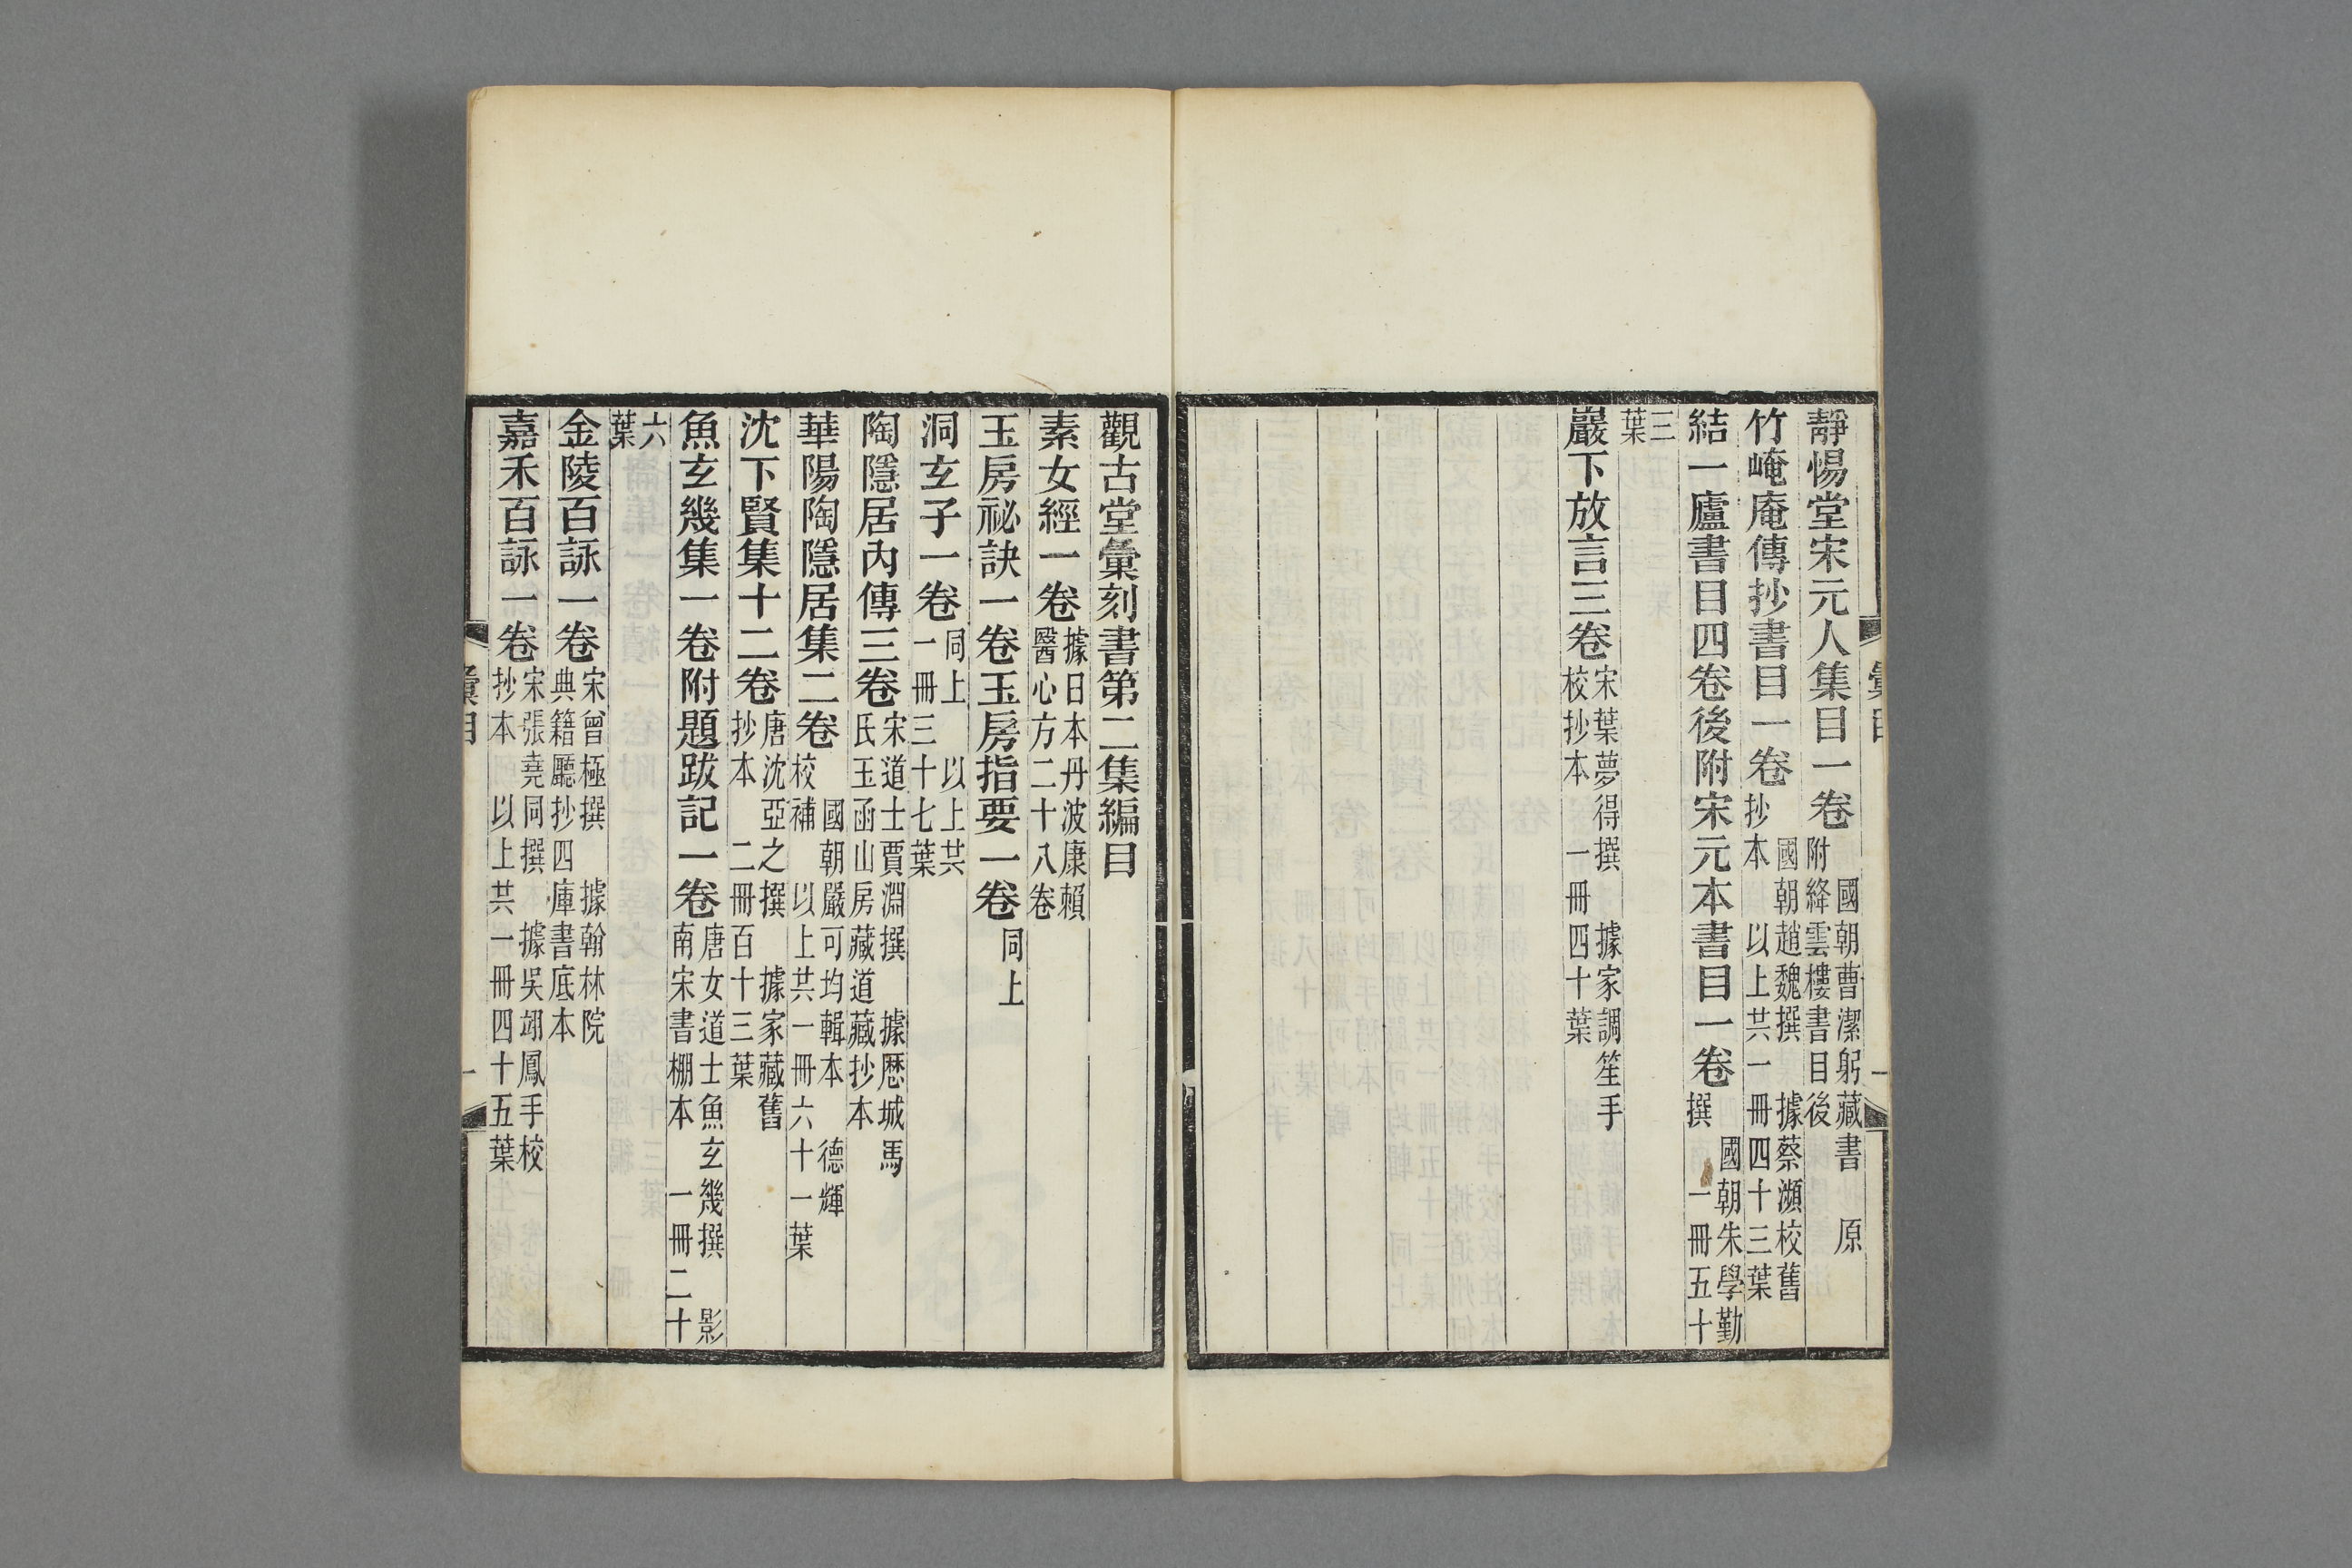 靜惕堂宋元人集目一卷 國朝曹潔躬藏書 原附絳雲樓書目後
竹崦庵傳抄書目一卷 國朝趙魏撰 據蔡瀕校舊抄本 以上共一冊四十三葉
結一廬書目四卷後附宋元本書目一卷 國朝朱學勤撰 一冊五十
三葉
巖下放言三卷 宋葉夢得撰 據家調笙手校抄本 一冊四十葉
彙目
一
觀古堂彙刻書第二集編目
素女經一卷 據日本丹波康賴醫心方二十八卷
玉房祕訣一卷玉房指要一卷 同上
洞玄子一卷 同上 以上共一冊三十七葉
陶隱居內傳三卷 宋道士賈淵撰 據歷城馬氏玉函山房藏道藏抄本
華陽陶隱居集二卷 國朝嚴可均輯本 德輝校補 以上共一冊六十一葉
沈下賢集十二卷 唐沈亞之撰 據家藏舊抄本 二冊百十三葉
魚玄幾集一卷附題跋記一卷 唐女道士魚玄幾撰 影南宋書棚本 一冊二十
六葉
金陵百詠一卷 宋曾極撰 據翰林院典籍廳抄四庫書底本
嘉禾百詠一卷 宋張堯同撰 據吳翊鳳手校抄本 以上共一冊四十五葉
彙目
一